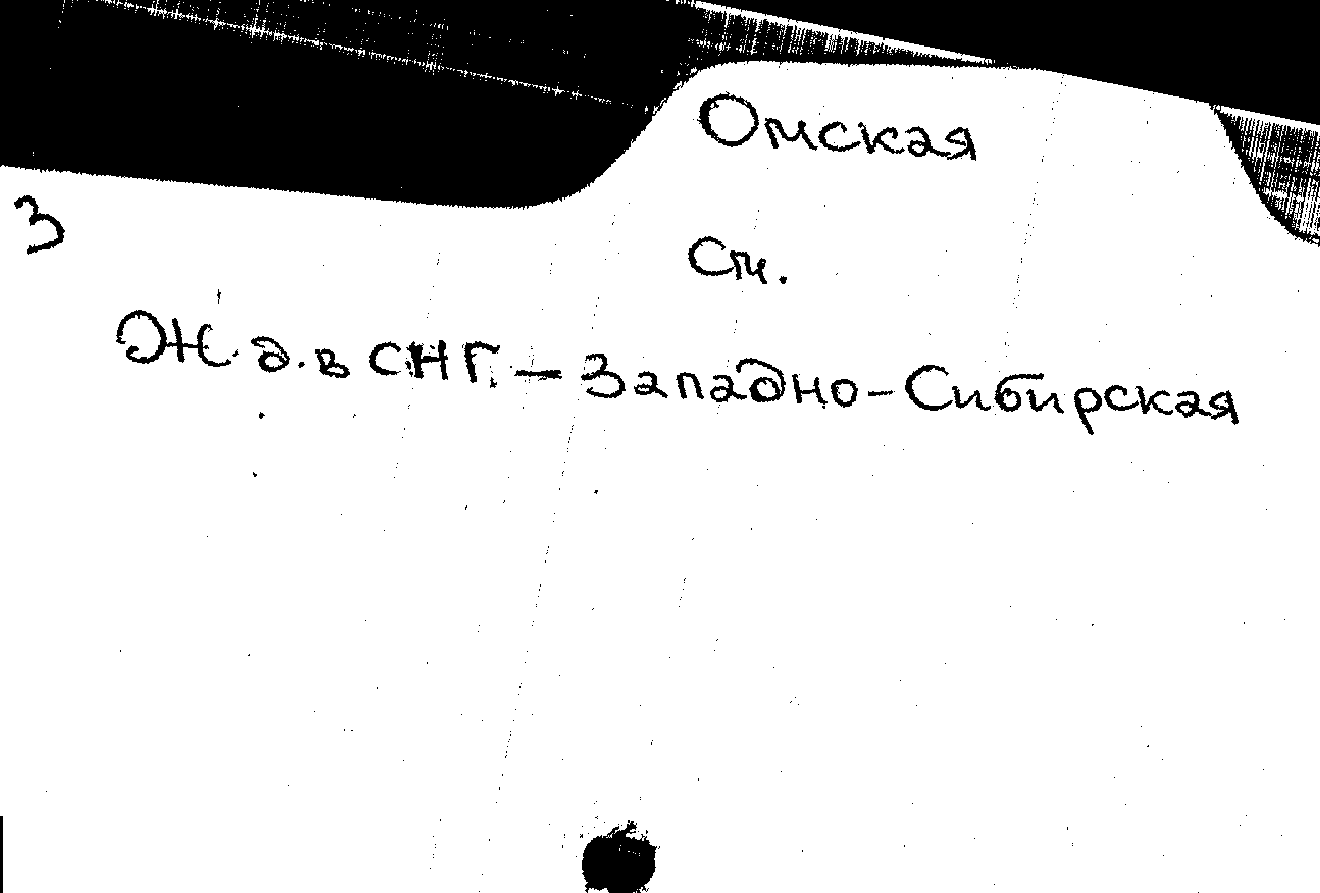 Омская
3
См.
Ж.д. в СНГ. – Западно-Сибирская